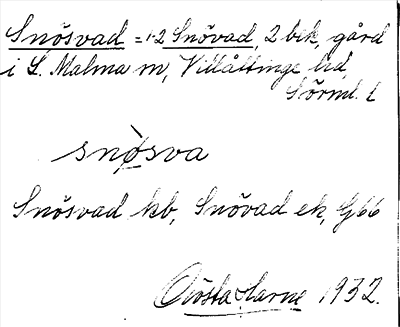 Snösvad = 1-2 Snövad, 2 bek, gård
i L. Malma sn, Villåttinge hd,
Sörml. l
snø̀sva
Snösvad kb, Snövad ek, G66
Gösta Harne 1932.